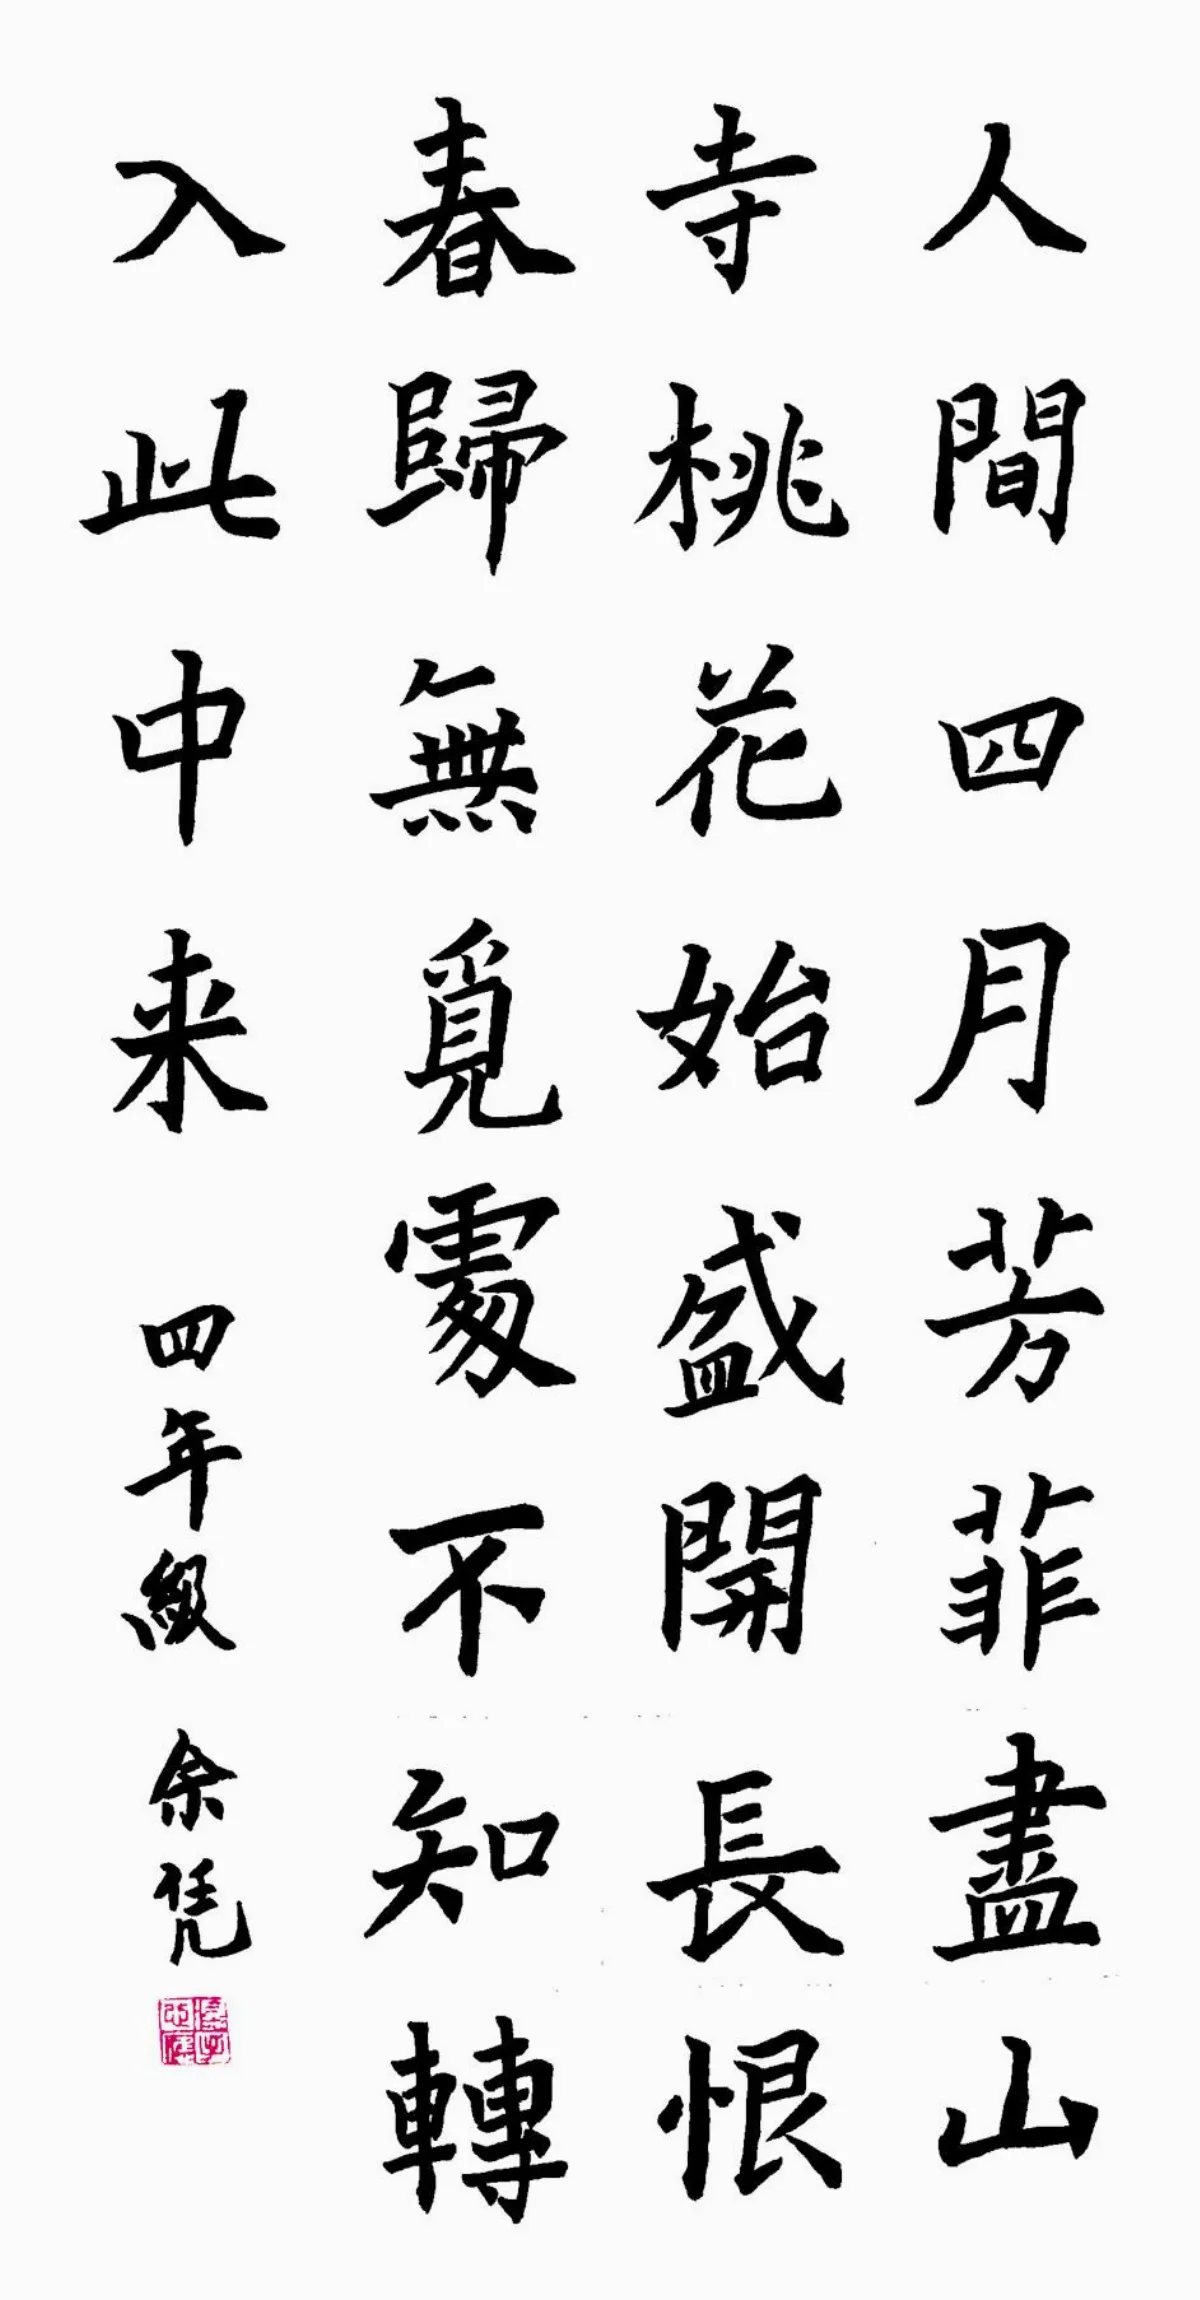 人間四月芳菲盡山
寺桃花始盛開長恨
春歸無覓處不知轉
入此中来
四年級 余凭